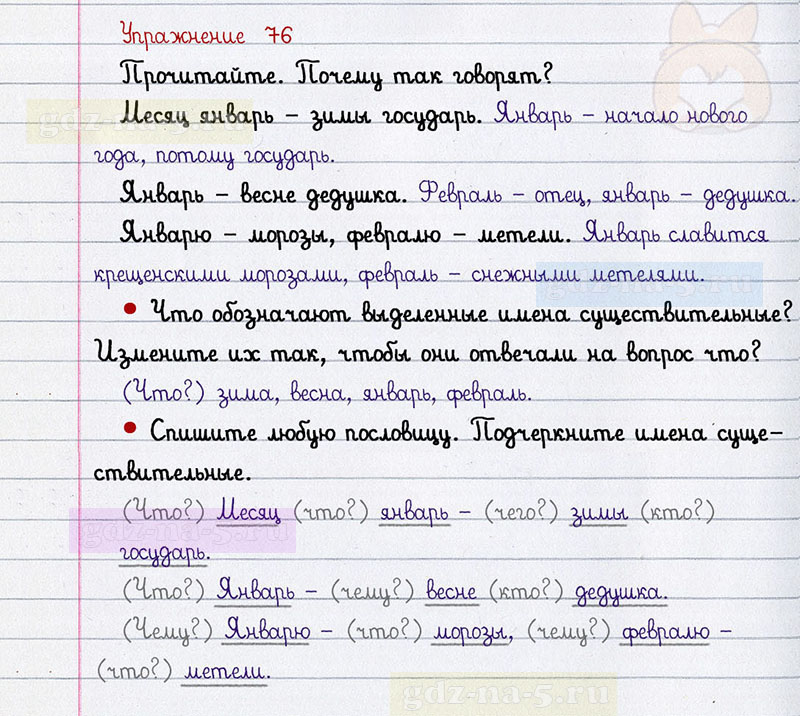 Упражнение 76
Прочитайте. Почему так говорят?
Месяц январь – зимы государь. Январь – начало нового
года, потому государь.
Январь – весне дедушка. Февраль – отец, январь – дедушка.
Январю – морозы, февралю – метели. Январь славится
крещенскими морозами, февраль – снежными метелями.
• Что обозначают выделенные имена существительные?
Измените их так, чтобы они отвечали на вопрос что?
(Что?) зима, весна, январь, февраль.
• Спишите любую пословицу. Подчеркните имена суще-
ствительные.
(Что?) Месяц (что?) январь – (чего?) зимы (кто?)
государь.
(Что?) Январь – (чему?) весне (кто?) дедушка.
(Чему?) Январю – (что?) морозы, (чему?) февралю –
(что?) метели.
gdz-na-5.ru
gdz-na-5.ru
gdz-na-5.ru
gdz-na-5.ru